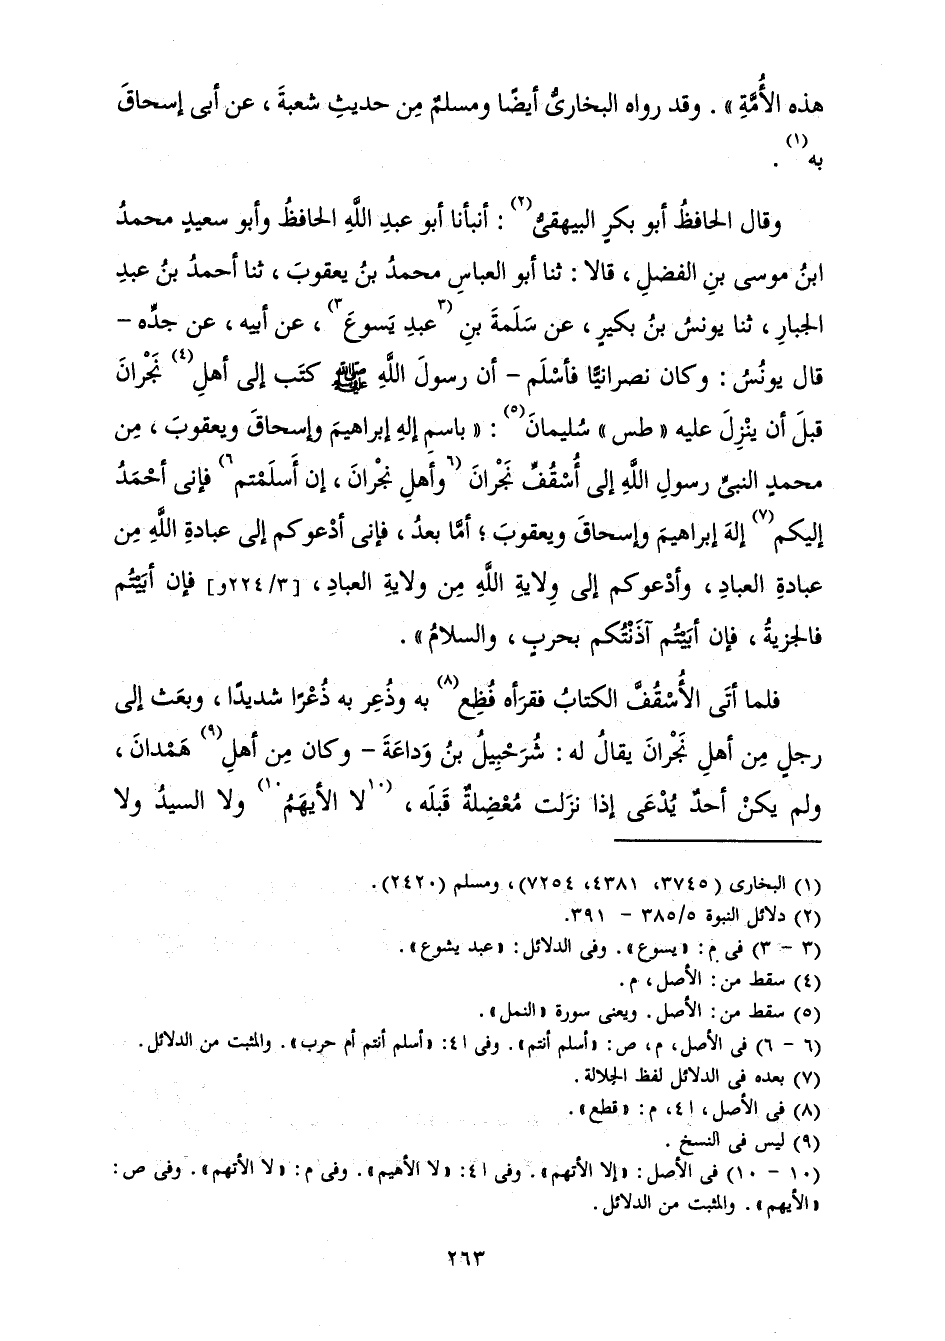 هذه الأُمَّةِ » . وقد رواه البخارىُّ أيضًا ومسلمٌ مِن حديثِ شعبةَ ، عن أبى إسحاقَ
به(١) .
وقال الحافظُ أبو بكرٍ البيهقىُّ(٢) : أنبأنا أبو عبدِ اللَّهِ الحافظُ وأبو سعيدٍ محمدُ
ابنُ موسى بنِ الفضلِ ، قالا : ثنا أبو العباسِ محمدُ بنُ يعقوبَ ، ثنا أحمدُ بنُ عبدِ
الجبارِ ، ثنا يونسُ بنُ بكيرٍ ، عن سَلَمةَ بنِ (٣عبدِ يَسوعَ٣) ، عن أبيه ، عن جدِّه –
قال يونُسُ : وكان نصرانيًّا فأسْلَم – أن رسولَ اللَّهِ ﷺ كتَب إلى أهلِ(٤) نَجْرانَ
قبلَ أن ينْزِلَ عليه « طس » سُليمانَ(٥) : « باسمِ إلهِ إبراهيمَ وإسحاقَ ويعقوبَ ، مِن
محمدٍ النبىِّ رسولِ اللَّهِ إلى أُسْقُفِّ نَجْرانَ (٦وأهلِ نجْرانَ ، إن أسلَمْتم٦) فإنى أحْمَدُ
إليكم(٧) إلهَ إبراهيمَ وإسحاقَ ويعقوبَ ؛ أمَّا بعدُ ، فإنى أدْعوكم إلى عبادةِ اللَّهِ مِن
عبادةِ العبادِ ، وأدْعوكم إلى وِلايةِ اللَّهِ مِن ولايةِ العبادِ ، [٢٢٤/٣و] فإن أبَيْتُم
فالجزيةُ ، فإن أبَيْتُم آذَنْتُكم بحربٍ ، والسلامُ » .
فلما أتَى الأُسْقُفَّ الكتابُ فقرَأه فُظِع(٨) به وذُعِر به ذُعْرًا شديدًا ، وبعَث إلى
رجلٍ مِن أهلِ نَجْرانَ يقالُ له : شُرَحْبِيلُ بنُ وَداعَةَ – وكان مِن أهلِ(٩) هَمْدانَ ،
ولم يكنْ أحدٌ يُدْعَى إذا نزَلت مُعْضِلةٌ قَبلَه ، (١٠لا الأيهَمُ١٠) ولا السيدُ ولا
(١) البخارى (٣٧٤٥، ٤٣٨١، ٧٢٥٤)، ومسلم (٢٤٢٠).
(٢) دلائل النبوة ٣٨٥/٥ – ٣٩١.
(٣ – ٣) فى م: «يسوع». وفى الدلائل: «عبد يشوع».
(٤) سقط من: الأصل، م.
(٥) سقط من: الأصل. ويعنى سورة «النمل».
(٦ – ٦) فى الأصل، م، ص: «أسلم أنتم». وفى ا ٤: «أسلم أنتم أم حرب». والمثبت من الدلائل.
(٧) بعده فى الدلائل لفظ الجلالة.
(٨) فى الأصل، ا ٤، م: «قطع».
(٩) ليس فى النسخ.
(١٠ – ١٠) فى الأصل: «إلا الأتهم». وفى ا ٤: «لا الأهيم». وفى م: «لا الأتهم». وفى ص:
«الأيهم». والمثبت من الدلائل.
٢٦٣